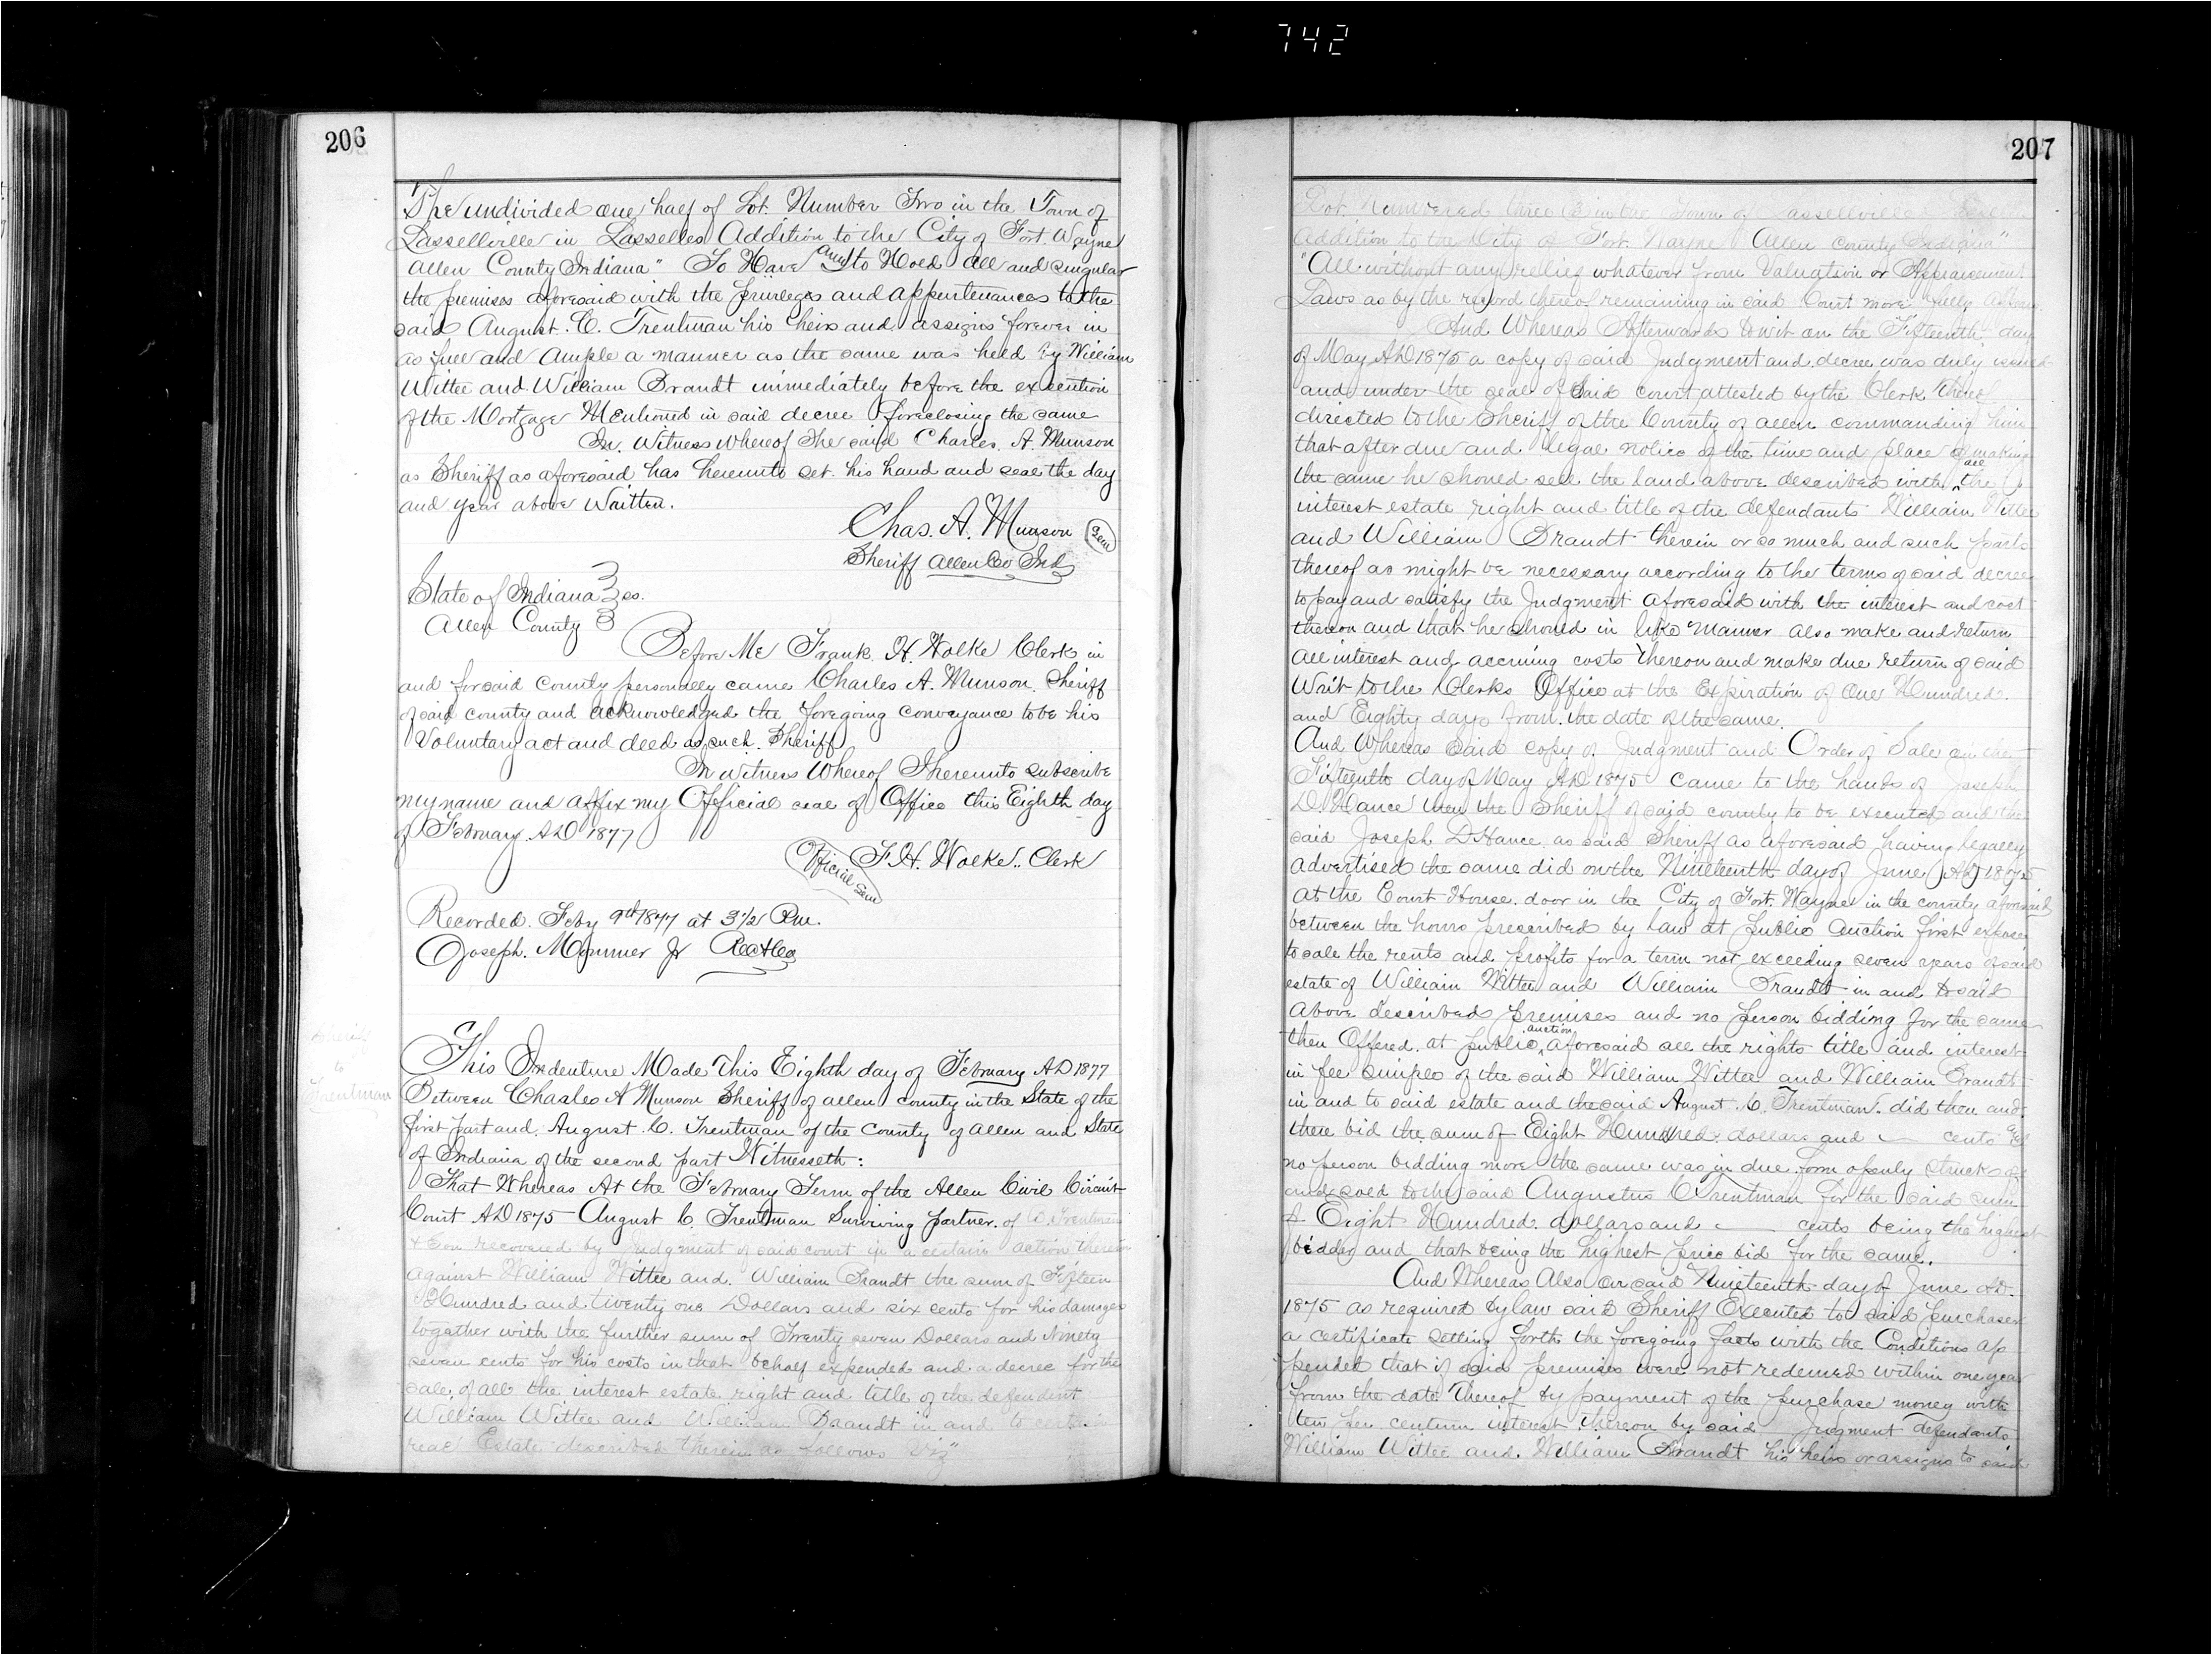 742
206
The undivided one half of Lot. Number Two in the Town of
Lasselleville in Lasselles Addition to the City of Fort. Wayne
Allen County Indiana" To Have and to Hold all and singular
the premises aforesaid with the privileges and appurtenances to the
said August. C. Trentman his heirs and assigns forever in
as full and ample a manner as the same was held by William
Wittee and William Brandt immediately before the execution
of the Mortgage Mentioned in said decree foreclosing the same
In Witness whereof The said Charles. A. Munson
as Sheriff as aforesaid has hereunto set. his hand and seal the day
and year above Written.
Chas. A. Munson Seal
Sheriff Allen Co Ind
State of Indiana } ss.
Allen County }
Before Me Frank. H. Wolke Clerk in
and for said County personally came Charles A. Munson. Sheriff
of said county and acknowledged the foregoing conveyance to be his
Voluntary act and deed as such. Sheriff
In witness Whereof I hereunto subscribe
my name and affix my Official seal of Office this Eighth day
of February. AD 1877
Official Seal F. H. Wolke.. Clerk
Recorded. Feby 9th 1877 at 3 1/2 Pm.
Joseph. Mommer Jr
Sheriff
to
Trentman
This Indenture Made This Eighth day of February AD 1877
Between Charles A Munson Sheriff of Allen county in the State of the
first part and. August. C. Trentman of the County of Allen and State
of Indiana of the second part Witnesseth:
That Whereas At the February Term of the Allen Civil Circuit
Court AD 1875 August C. Trentman Surviving partner. of B. Trentman
& Son recovered by Judgment of said court in a certain action therein
against William Wittee and. William Brandt the sum of Fifteen
Hundred and twenty one Dollars and six cents for his damages
together with the further sum of Twenty seven Dollars and Ninety
seven cents for his costs in that behalf expended and a decree for the
sale, of all the interest estate right and title of the defendent
William Wittee and William Brandt in and to certain
real Estate described therein as follows viz"
207
Lot Numbered three in the Town of Lasselleville
Addition to the City of Fort. Wayne Allen county Indiana"
"All without any relief whatever from Valuation or Appraisement
Laws as by the record thereof remaining in said Court more fully appears
And Whereas Afterwards to wit on the Fifteenth day
of May AD 1875 a copy of said Judgment and decree was duly issued
and under the seal of said Court attested by the Clerk thereof
directed to the Sheriff of the County of Allen commanding him
that after due and legal notice of the time and place of making
the same he should sell the land above described with all the
interest estate right and title of the defendants William Wittee
and William Brandt therein or so much and such parts
thereof as might be necessary according to the terms of said decree
to pay and satisfy the Judgment aforesaid with the interest and cost
thereon and that he should in like manner also make and return
all interest and accruing costs thereon and make due return of said
Writ to the Clerks Office at the Expiration of One Hundred.
and Eighty days from. the date of the same.
And Whereas said copy of Judgment and Order of Sale on the
Fifteenth day of May AD 1875 came to the hands of Joseph
D. Hance then the Sheriff of said county to be executed and the
said Joseph D Hance as said Sheriff as aforesaid having legally
advertised the same did on the Nineteenth day of June AD 1875
at the Court House. door in the City of Fort. Wayne in the county aforesaid
between the hours prescribed by law at public auction first expose
to sale the rents and profits for a term not exceeding seven years of said
estate of William Wittee and William Brandt in and to said
above described premises and no person bidding for the same
then Offered. at public auction aforesaid all the rights title and interest
in fee simple of the said William Wittee and William Brandt
in and to said estate and the said August. C. Trentman. did then and
there bid the sum of Eight Hundred dollars and — cents and
no person bidding more the same was in due form openly struck off
and sold to the said Augustus C Trentman for the said sum
of Eight Hundred. dollars and — cents being the highest
bidder and that being the highest price bid for the same.
And Whereas Also on said Nineteenth day of June AD.
1875 as required by law said Sheriff Executed to said purchaser
a certificate setting forth the foregoing facts with the Conditions ap
pended that if said premises were not redeemed within one year
from the date thereof by payment of the purchase money with
ten per centum interest thereon by said Judgment defendants
William Wittee and. William Brandt his heirs or assigns to said